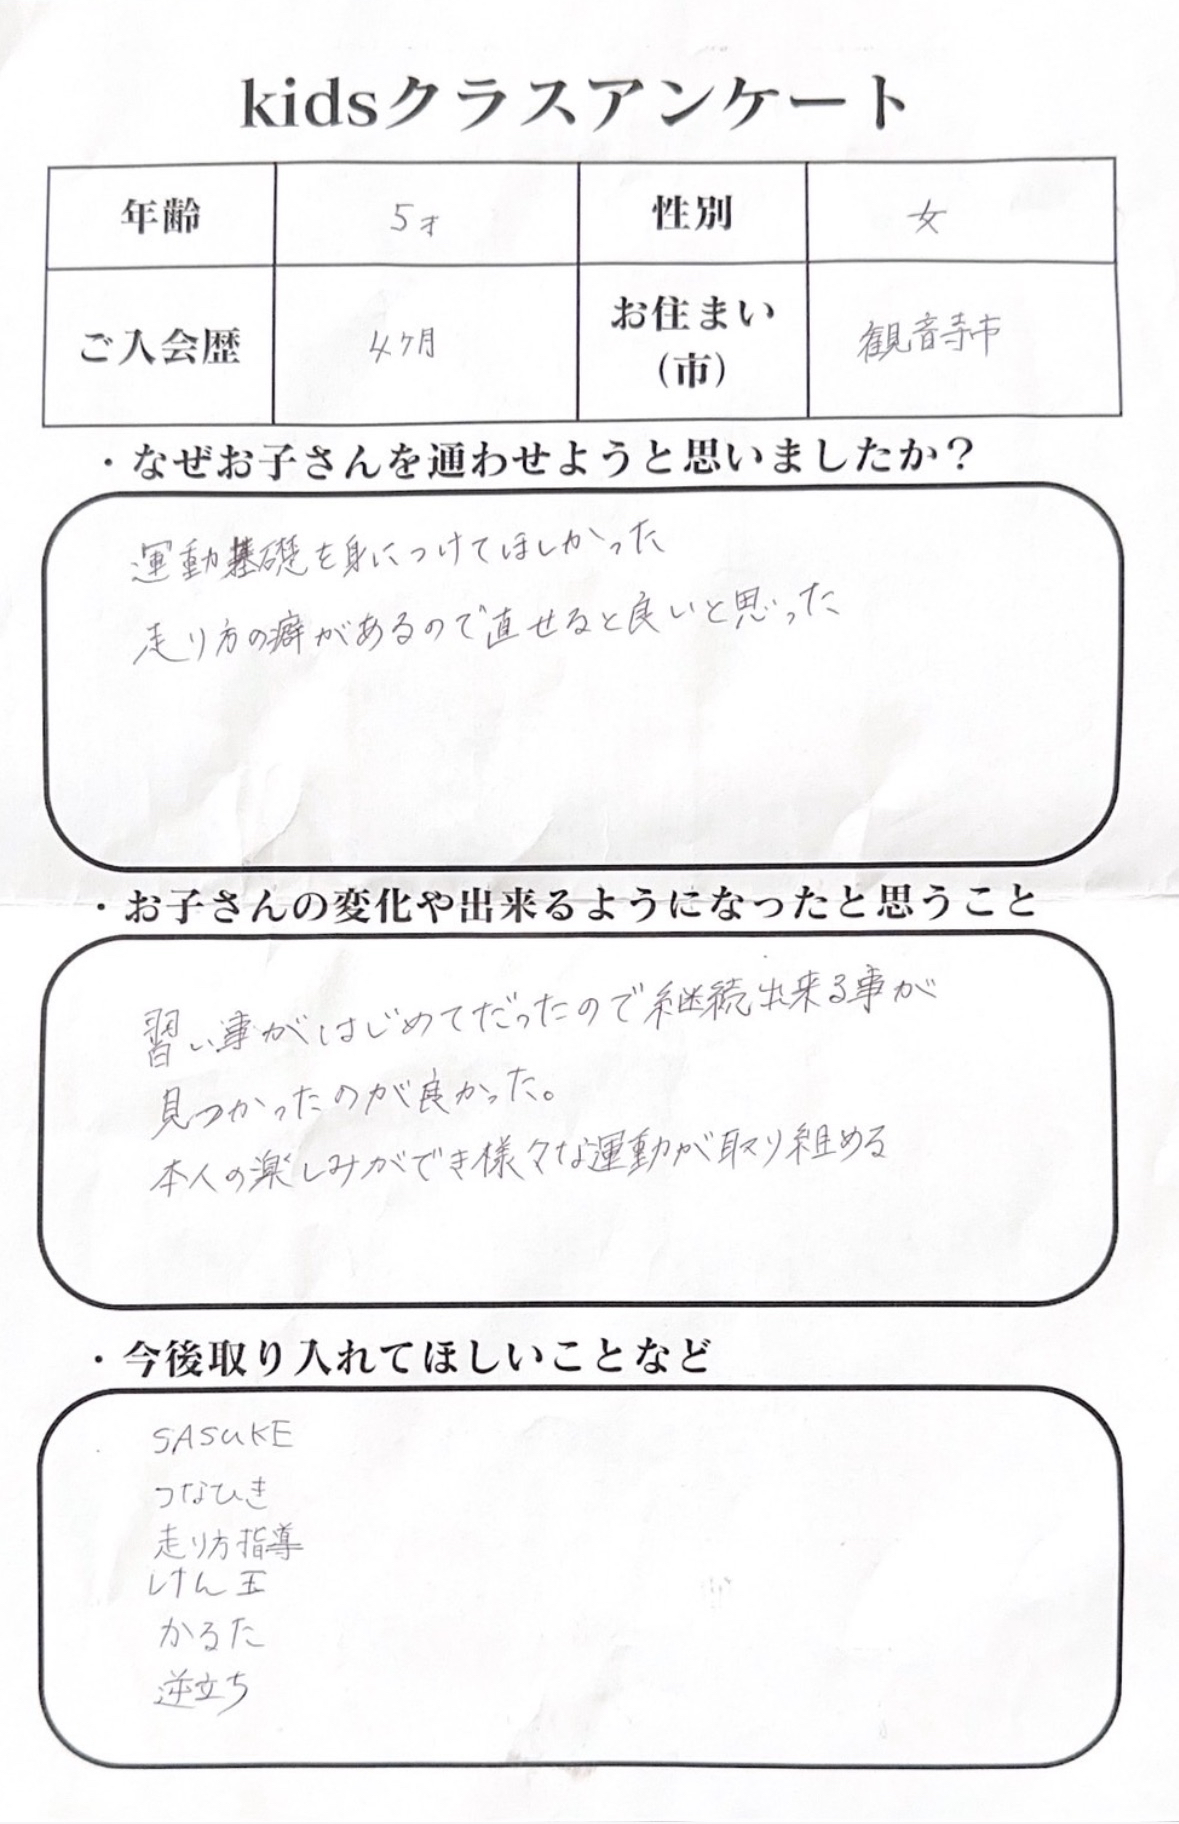 kidsクラスアンケート
年齢 5才 性別 女
ご入会歴 4ヶ月 お住まい(市) 観音寺市
・なぜお子さんを通わせようと思いましたか？
運動基礎を身につけてほしかった
走り方の癖があるので直せると良いと思った
・お子さんの変化や出来るようになったと思うこと
習い事がはじめてだったので継続出来る事が
見つかったのが良かった。
本人の楽しみができ様々な運動が取り組める
・今後取り入れてほしいことなど
SASUKE
つなひき
走り方指導
けん玉
かるた
逆立ち